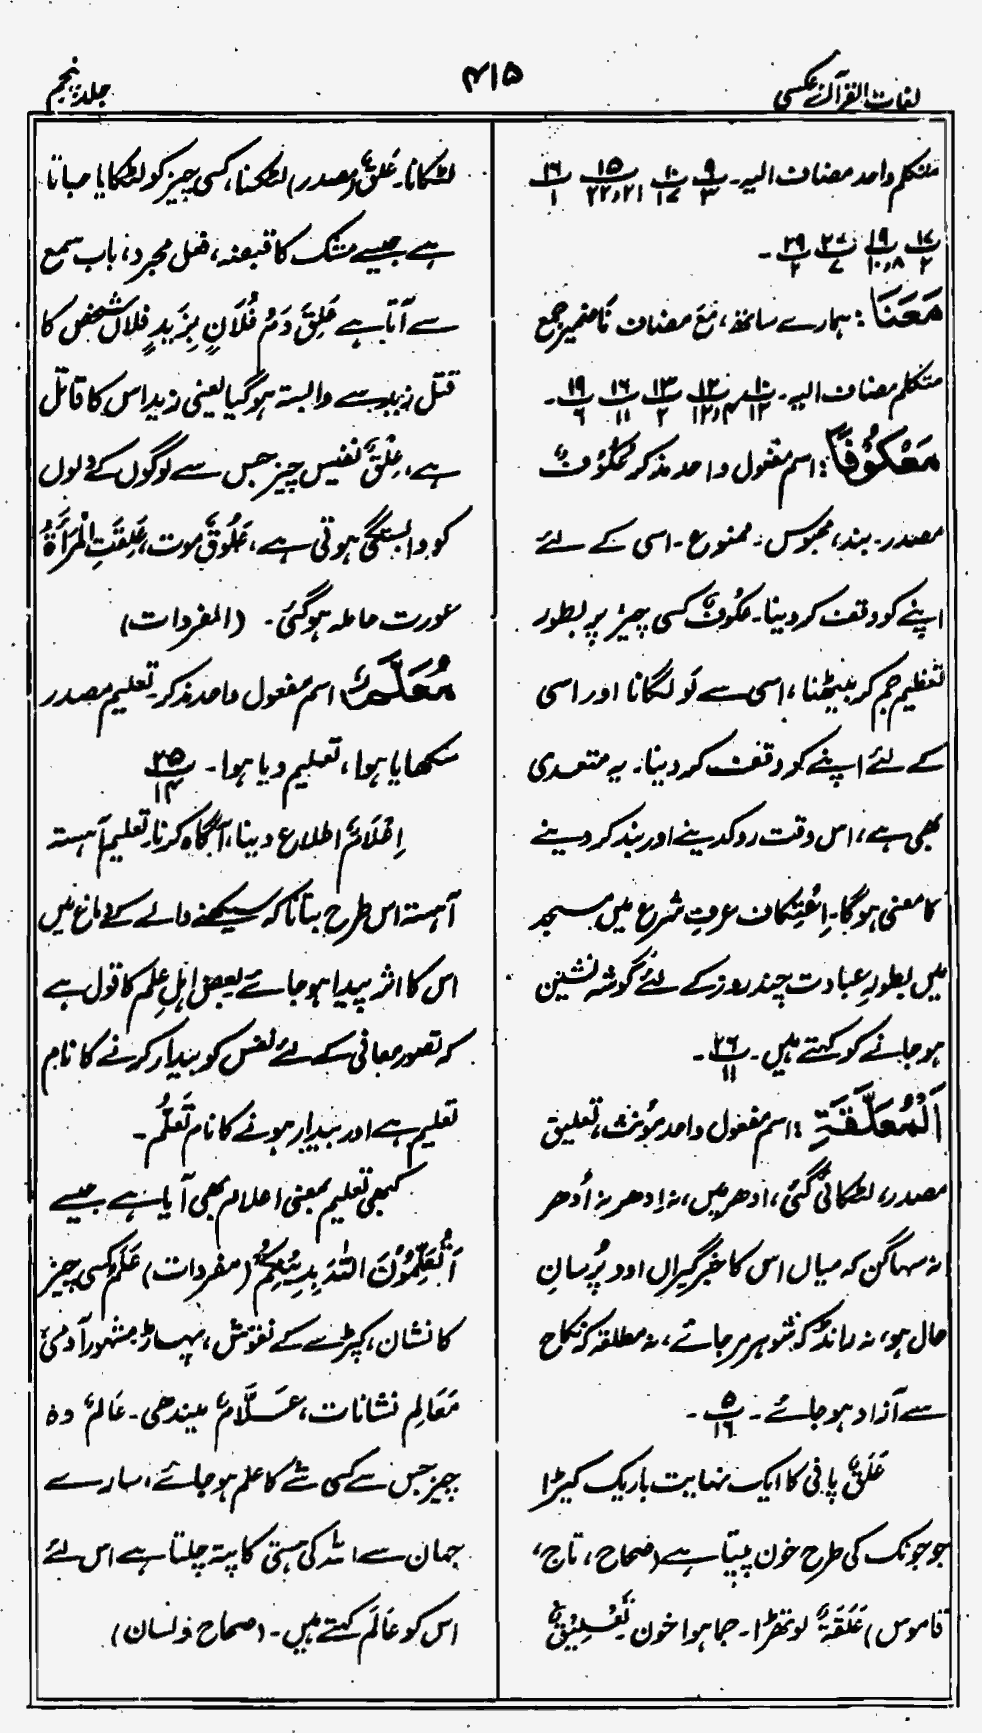 لغات القرآن عکسی
۴۱۵
جلد پنجم
متکلم واحد مضاف الیہ۔ ۹/۳ ۱۰/۱۷ ۱۵/۲۲،۲۱ ۱۶/۱
۱۷/۲ ۱۹/۱۰،۸ ۲۷/۷ ۲۹/۲ ۔
مَعَنَا: ہمارے ساتھ، مَعَ مضاف نَا ضمیر جمع
متکلم مضاف الیہ۔ ۱۰/۱۲ ۱۲/۱۲،۴ ۱۳/۲ ۱۶/۱۱ ۱۹/۶ ۔
مَعْکُوْفًا: اسم مفعول واحد مذکر عُکُوْفٌ
مصدر۔ بند، محبوس۔ ممنوع۔ اسی کے لئے
اپنے کو وقف کر دینا۔ عکوفٌ کسی چیز پر بطور
تعظیم جم کر بیٹھنا، اسی سے لَو لگانا اور اسی
کے لئے اپنے کو وقف کر دینا۔ یہ متعدی
بھی ہے، اس وقت روکدینے اور بند کر دینے
کا معنی ہوگا۔ اِعْتِکاف عرفِ شرع میں مسجد
میں بطورِ عبادت چند روز کے لئے گوشہ نشین
ہو جانے کو کہتے ہیں۔ ۲۶/۱۱ ۔
اَلْمُعَلَّقَۃِ: اسم مفعول واحد مؤنث، تعلیق
مصدر، لٹکائی گئی، ادھر میں، نہ اِدھر نہ اُدھر
نہ سہاگن کہ میاں اس کا خبرگیراں اور پُرسانِ
حال ہو، نہ رانڈ کہ شوہر مر جائے، نہ مطلقہ کہ نکاح
سے آزاد ہو جائے۔ ۵/۱۶ ۔
عَلَقٌ پانی کا ایک نہایت باریک کیڑا
جو جونک کی طرح خون پیتا ہے (صحاح، تاج،
قاموس) عَلَقَۃٌ لوتھڑا۔ جما ہوا خون۔ تَعْلِیْقٌ
لٹکانا۔ عَلَقٌ (مصدر) لٹکنا، کسی چیز کو لٹکایا جاتا
ہے جیسے مشک کا قبضہ، فعل مجرد، باب سمع
سے آتا ہے عَلِقَ دَمُ فُلَانٍ بِزَیدٍ فلاں شخص کا
قتل زید سے وابستہ ہو گیا یعنی زید اس کا قاتل
ہے، عِلْقٌ نفیس چیز جس سے لوگوں کے دلوں
کو وابستگی ہوتی ہے، عَلُوقٌ موت، عَلِقَتِ الْمَرْأَۃُ
عورت حاملہ ہو گئی۔ (المفردات)
مُعَلَّمٌ اسم مفعول واحد مذکر۔ تعلیم مصدر
سکھایا ہوا، تعلیم دیا ہوا۔ ۲۵/۱۴
اِعْلَامٌ اطلاع دینا، آگاہ کرنا۔ تعلیم آہستہ
آہستہ اس طرح بتانا کہ سیکھنے والے کے دماغ میں
اس کا اثر پیدا ہو جائے بعض اہلِ علم کا قول ہے
کہ تصور معانی کے لئے نفس کو بیدار کرنے کا نام
تعلیم ہے اور بیدار ہونے کا نام تَعَلُّم۔
کبھی تعلیم بمعنی اعلام بھی آیا ہے جیسے
اَتُعَلِّمُوْنَ اللّٰہَ بِدِیْنِکُمْ (مفردات) عَلَمٌ کسی چیز
کا نشان، کپڑے کے نقوش، پہاڑ، مشہور آدمی
مَعَالِم نشانات، عَلَّامٌ میندھی۔ عَالَمٌ وہ
چیز جس سے کسی شے کا علم ہو جائے، سارے
جہان سے اللہ کی ہستی کا پتہ چلتا ہے اس لئے
اس کو عَالَم کہتے ہیں۔ (صحاح و لسان)